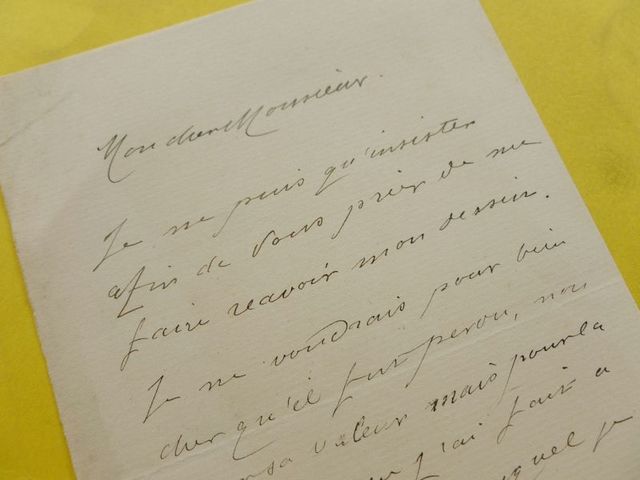 Mon cher Monsieur.
Je ne puis qu'insister
afin de vous prier de me
faire reavoir mon dessin.
Je ne voudrais pour bien
cher qu'il fut perdu, non
sa valeur mais pour la
j'ai fait a
quel je